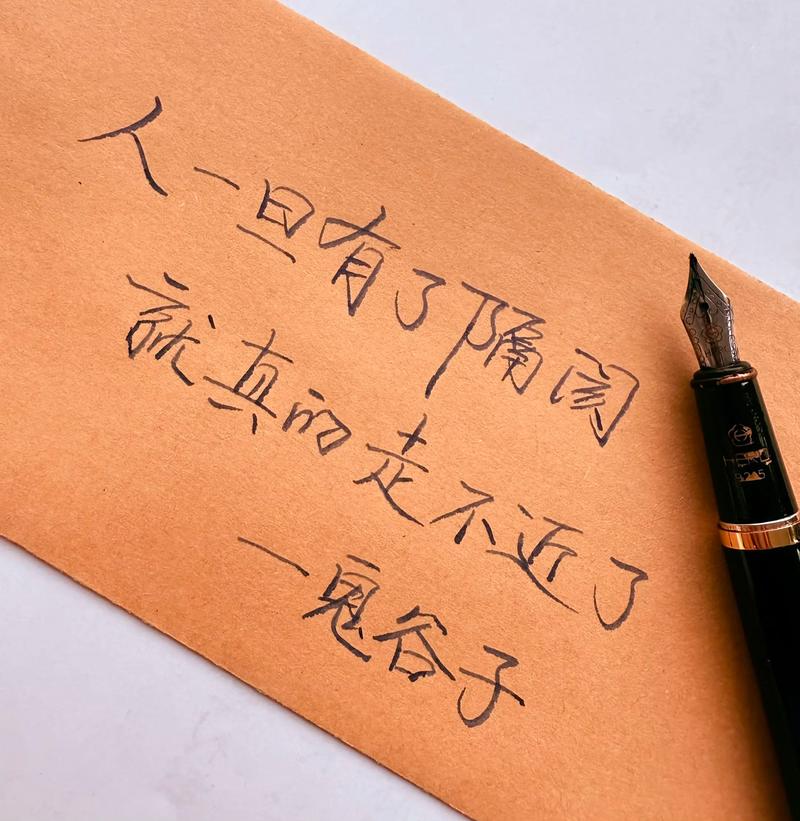 人一旦有了隔阂
就真的走不近了
一鬼谷子